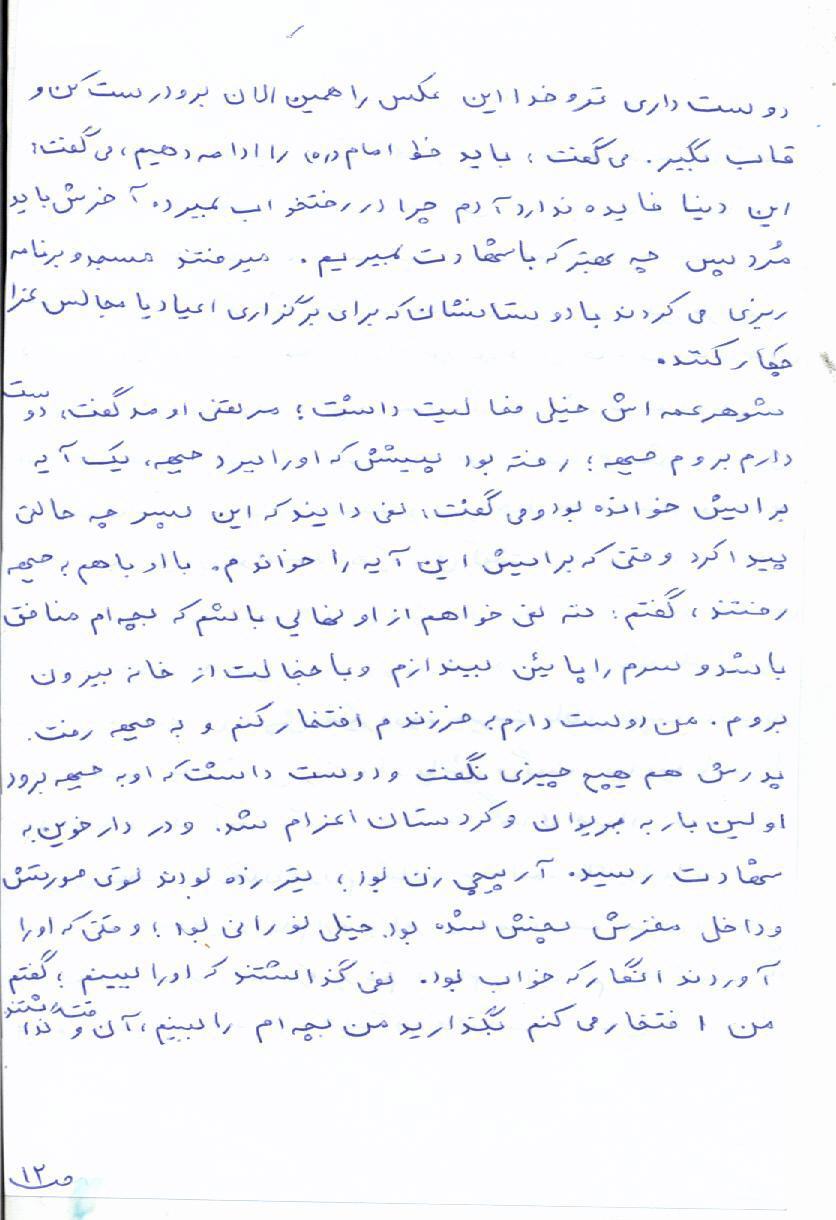 دوست داری ترو خدا این عکس را همین الان برو درست کن و
قاب بگیر. می گفت، باید خط امام (ره) را ادامه دهیم، می گفت:
این دنیا فایده ندارد آدم چرا در رختخواب بمیرد. آخرش باید
مُرد پس چه بهتر که با شهادت بمیریم. میرفتند مسجد و برنامه
ریزی می کردند با دوستانشان که برای برگزاری اعیاد یا مجالس عزا
چکار کنند.
شوهر عمه اش خیلی فعالیت داشت؛ مرتضی اومد گفت، دوست
دارم بروم جبهه؛ رفته بود پیشش که او را ببرد جبهه، یک آیه
برایش خوانده بود و می گفت، نمی دانید که این پسر چه حالتی
پیدا کرد وقتی که برایش این آیه را خواندم. با او با هم به جبهه
رفتند، گفتم: ننه نمی خواهم از اونهایی باشم که بچه ام منافق
باشد و سرم را پایین بیندازم و با خجالت از خانه بیرون
بروم. من دوست دارم به فرزندم افتخار کنم و به جبهه رفت.
پدرش هم هیچ چیزی نگفت و دوست داشت که او به جبهه برود
اولین بار به مریوان و کردستان اعزام شد. و در دارخوین به
شهادت رسید. آرپیچی زن بود، تیر زده بودند توی صورتش
و داخل مغزش پخش شده بود. خیلی نورانی بود؛ وقتی که او را
آوردند انگار که خواب بود. نمی گذاشتند که او را ببینم؛ گفتم
من افتخار می کنم بگذارید من بچه ام را ببینم، آن وقت گذاشتند
ص ۱۲